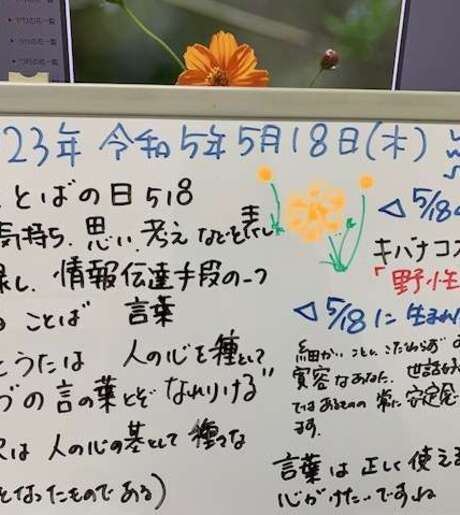 23年 令和5年5月18日(木)
とばの日 518
気持ち、思い、考えなどを表し
し、情報伝達手段の一つ
ことば 言葉
とうたは 人の心を種として
づの言の葉とぞ なれりける"
は 人の心の基として 種々な
となったものである)
◁5/18の
キバナコス
「野性
◁5/18に生まれ
細かいことに こだわらず
寛容なあなた。世話好き
ではあるものの 常に 安定
ます。
言葉は正しく使えま
心がけたいですね